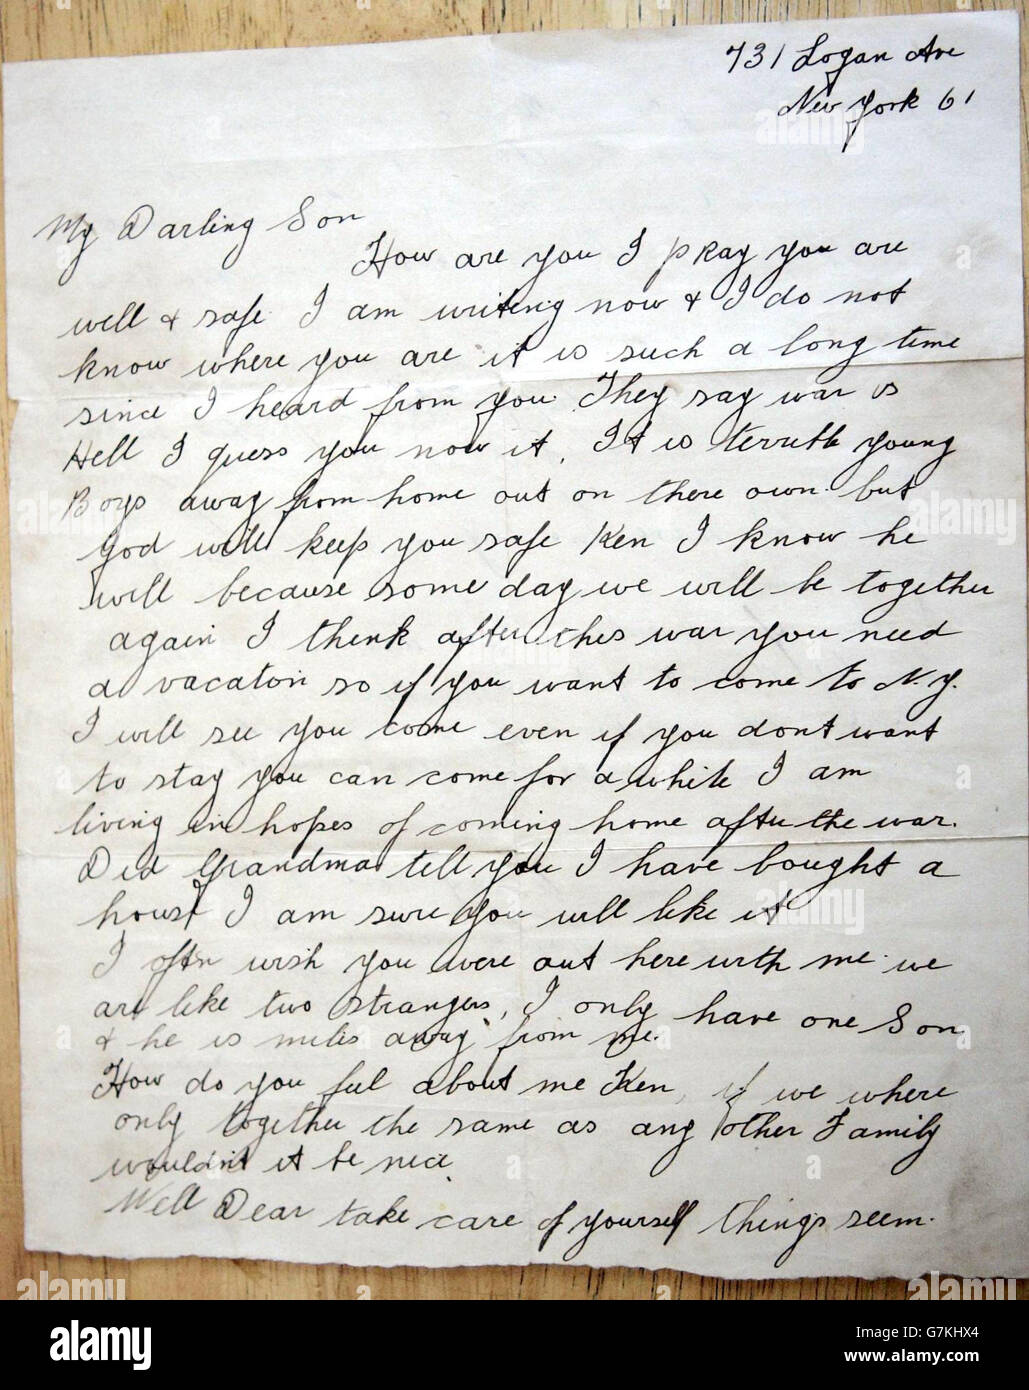 731 Logan Ave
New York 61
My Darling Son
How are you I pray you are
well & safe. I am writing now & I do not
know where you are it is such a long time
since I heard from you. They say war is
Hell I guess you now it. It is terrible young
Boys away from home out on there own. but
god will keep you safe Ken I know he
will because some day we will be together
again I think after this war you need
a vacaton so if you want to come to N.Y.
I will see you come even if you dont want
to stay you can come for a while I am
living in hopes of coming home after the war.
Did Grandma tell you I have bought a
house I am sure you will like it
I often wish you were out here with me. we
are like two strangers, I only have one Son
& he is miles away from me.
How do you feel about me Ken, if we where
only together the same as any other Family
wouldn't it be nice.
Well Dear take care of yourself things seem.
alamy
Image ID: G7KHX4
www.alamy.com